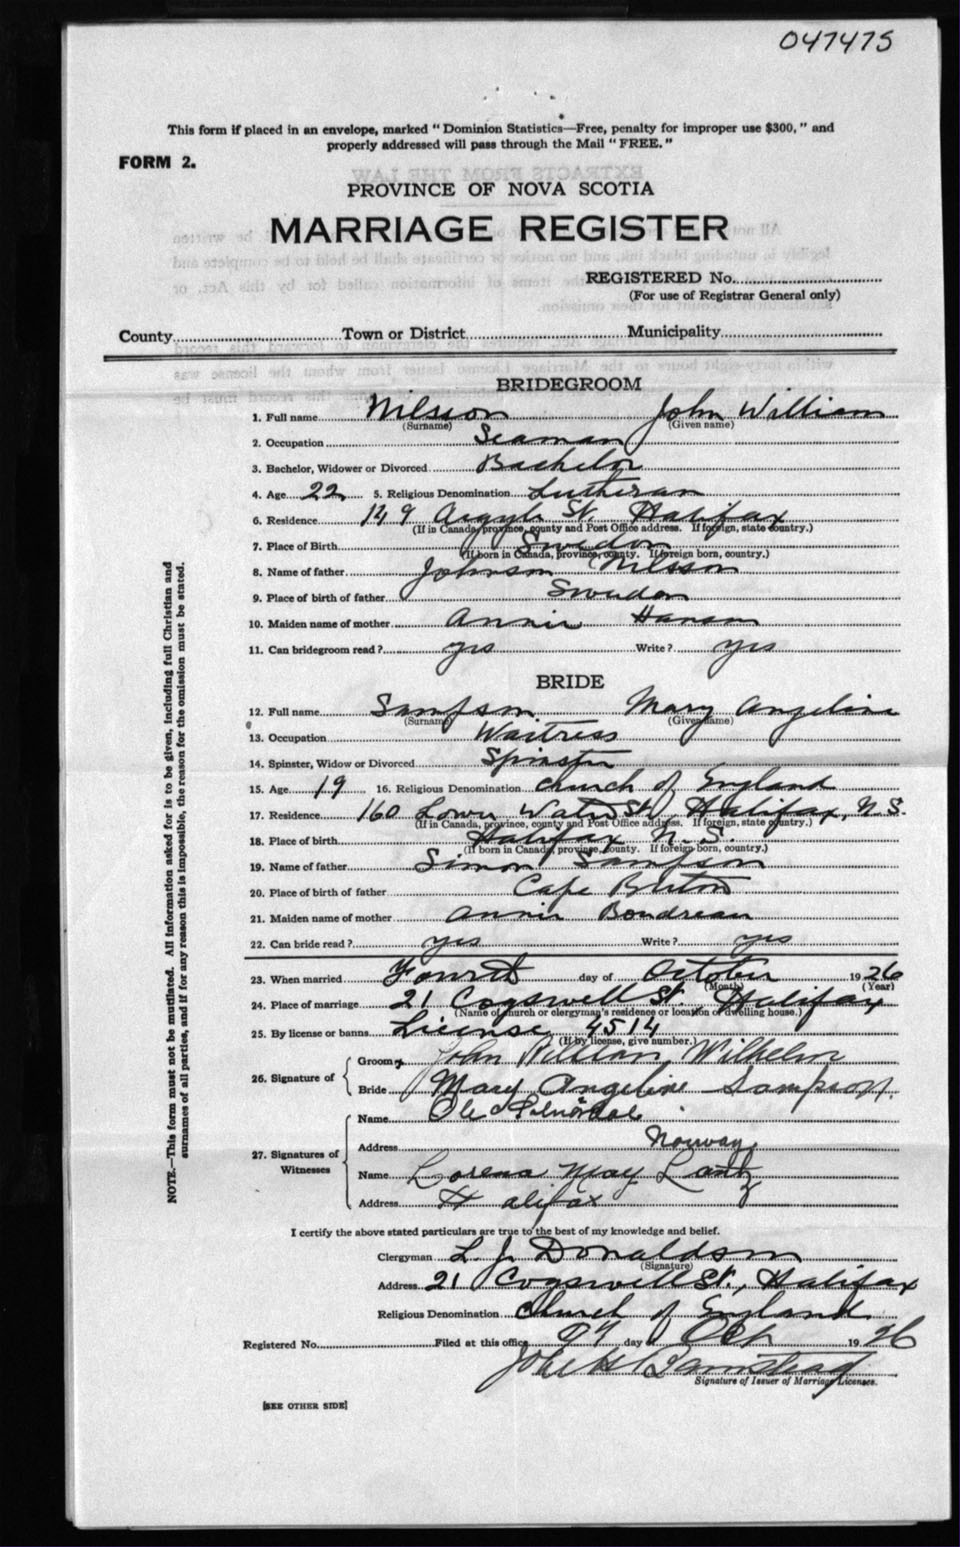 047475
This form if placed in an envelope, marked "Dominion Statistics—Free, penalty for improper use $300," and
properly addressed will pass through the Mail "FREE."
FORM 2.
PROVINCE OF NOVA SCOTIA
MARRIAGE REGISTER
REGISTERED No.
(For use of Registrar General only)
County Town or District Municipality
BRIDEGROOM
1. Full name Nilsson John William
(Surname) (Given name)
2. Occupation Seaman
3. Bachelor, Widower or Divorced Bachelor
4. Age 22 5. Religious Denomination Lutheran
6. Residence 149 Argyle St. Halifax
(If in Canada, province, county and Post Office address. If foreign, state country.)
7. Place of Birth Sweden
(If born in Canada, province, county. If foreign born, country.)
8. Name of father Johnson Nilsson
9. Place of birth of father Sweden
10. Maiden name of mother Annie Hanson
11. Can bridegroom read? yes Write? yes
BRIDE
12. Full name Sampson Mary Angeline
(Surname) (Given name)
13. Occupation Waitress
14. Spinster, Widow or Divorced Spinster
15. Age 19 16. Religious Denomination Church of England
17. Residence 160 Lower Water St, Halifax, N.S.
(If in Canada, province, county and Post Office address. If foreign, state country.)
18. Place of birth Halifax N.S.
(If born in Canada, province, county. If foreign born, country.)
19. Name of father Simon Sampson
20. Place of birth of father Cape Breton
21. Maiden name of mother Annie Boudreau
22. Can bride read? yes Write? yes
23. When married Fourth day of October 1926
(Month) (Year)
24. Place of marriage 21 Cogswell St. Halifax
(Name of church or clergyman's residence or location of dwelling house.)
25. By license or banns License 4514
(If by license, give number.)
26. Signature of
Groom John Wilhelm
Bride Mary Angeline Sampson
27. Signatures of Witnesses
Name Ole
Address Norway
Name Lorena May Lantz
Address Halifax
I certify the above stated particulars are true to the best of my knowledge and belief.
Clergyman L. J. Donaldson
(Signature)
Address 21 Cogswell St., Halifax
Religious Denomination Church of England
Registered No. Filed at this office day Oct 1926
John H Barnstead
Signature of Issuer of Marriage Licenses.
[SEE OTHER SIDE]
NOTE.—This form must not be mutilated. All information asked for is to be given, including full Christian and
surnames of all parties, and if for any reason this is impossible, the reason for the omission must be stated.